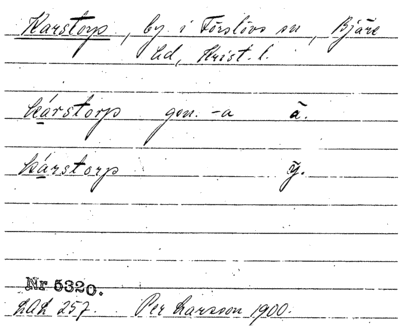 Karstorp, by i Förslövs sn, Bjäre
hd, Krist. l.
kárstorp gen. -a ä.
kárstorp y.
Nr 5320.
LAL 257. Per Larsson 1900.